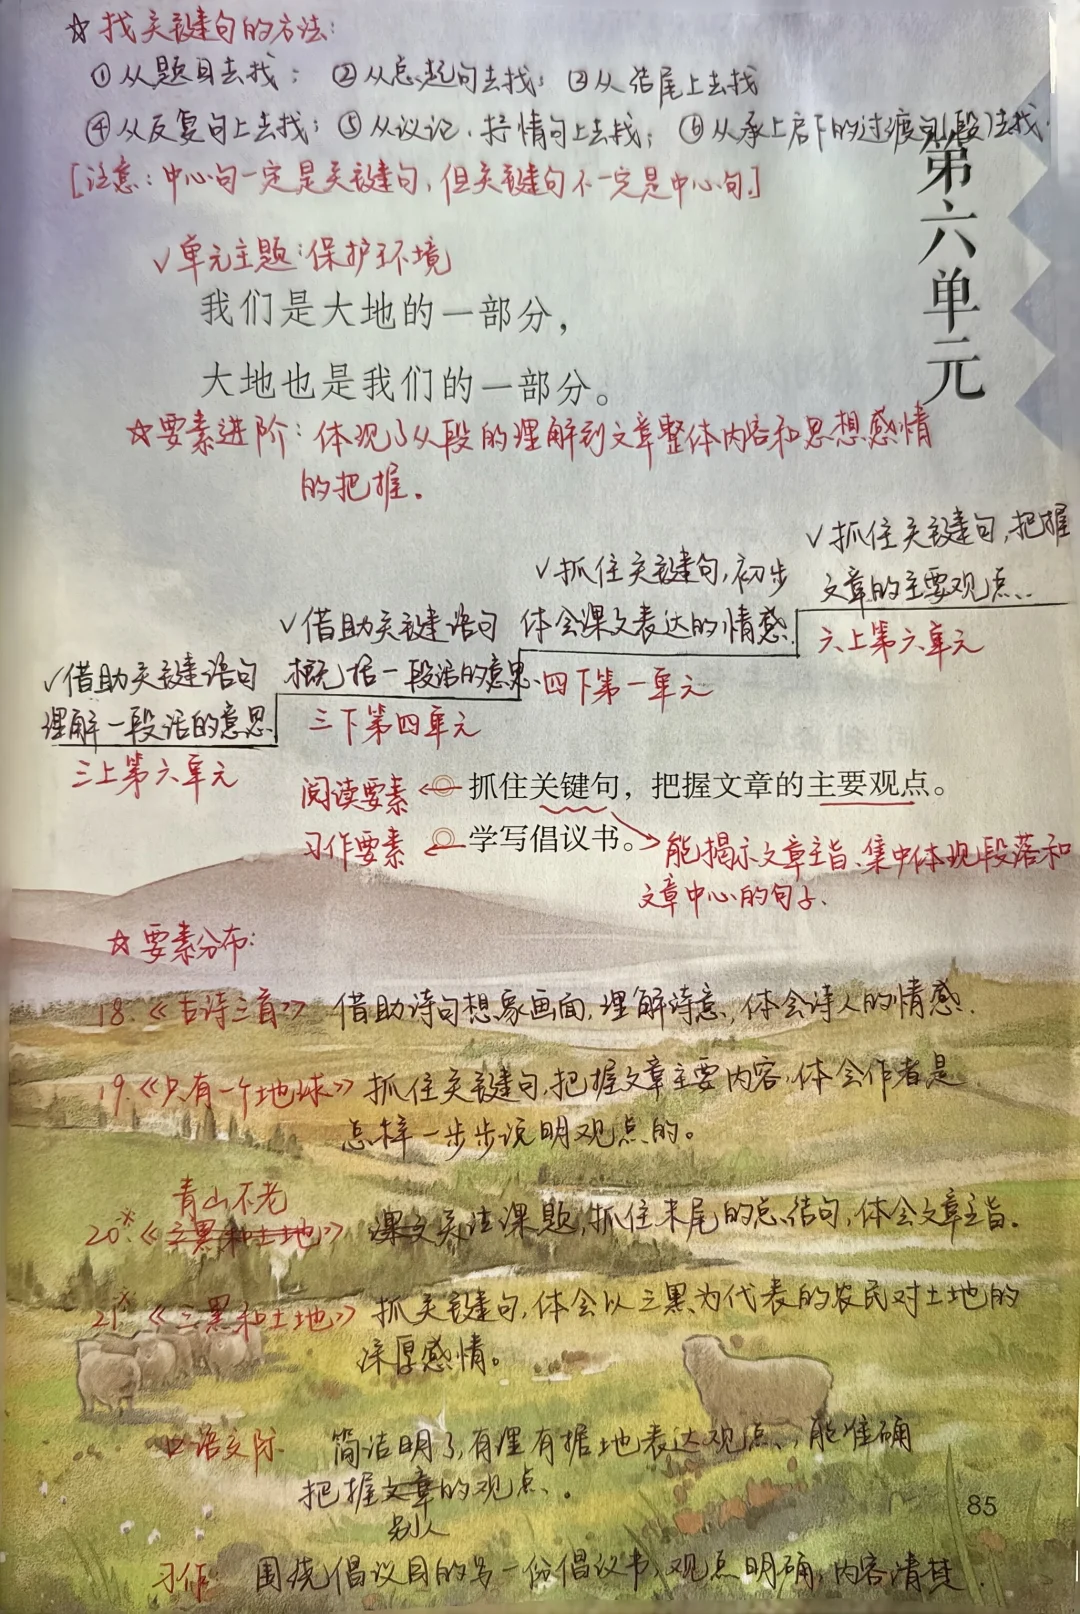 ☆找关键句的方法：
①从题目去找；②从总起句去找；③从结尾上去找
④从反复句上去找；⑤从议论、抒情句上去找；⑥从承上启下的过渡句(段)去找.
[注意：中心句一定是关键句，但关键句不一定是中心句。]
第六单元
✓单元主题：保护环境
我们是大地的一部分，
大地也是我们的一部分。
☆要素进阶：体现了从段的理解到文章整体内容和思想感情
的把握。
✓抓住关键句，把握
文章的主要观点.
六上第六单元
✓抓住关键句，初步
体会课文表达的情感.
四下第一单元
✓借助关键语句
概括一段话的意思.
三下第四单元
✓借助关键语句
理解一段话的意思.
三上第六单元
阅读要素 ← 抓住关键句，把握文章的主要观点。
习作要素 ← 学写倡议书。
能揭示文章主旨、集中体现段落和
文章中心的句子.
☆要素分布：
18.《古诗三首》 借助诗句想象画面，理解诗意，体会诗人的情感.
19.《只有一个地球》抓住关键句，把握文章主要内容，体会作者是
怎样一步步说明观点的。
青山不老
20.*《三黑和土地》 课文关注课题，抓住末尾的总结句，体会文章主旨。
21*《三黑和土地》抓关键句，体会以三黑为代表的农民对土地的
深厚感情。
口语交际 简洁明了，有理有据地表达观点，能准确
把握文章的观点。
别人
习作 围绕倡议目的写一份倡议书，观点明确，内容清楚.
85